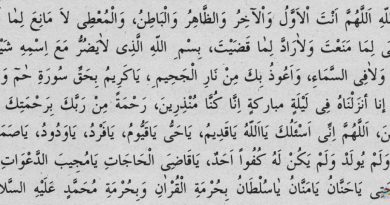 للهِ اَللّٰهُمَّ اَنْتَ الْاَوَّلُ وَالْاٰخِرُ وَالظَّاهِرُ وَالْبَاطِنُ، وَالْمُعْطِى لَا مَانِعَ لِمَا
لِمَا مَنَعْتَ وَلَارَادَّ لِمَا قَضَيْتَ، بِسْمِ اللّٰهِ الَّذِى لَايَضُرُّ مَعَ اِسْمِهِ
وَلَافِى السَّمَاءِ، وَاَعُوذُ بِكَ مِنْ نَارِ الْجَحِيمِ، يَاكَرِيمُ بِحَقِّ سُورَةِ حٰمٓ
اِنا اَنزَلْنَاهُ فِى لَيْلَةٍ مباركةٍ اِنَّا كُنَّا مُنْذِرِينَ، رَحْمَةً مِنْ رَبِّكَ بِرَحْمَتِكَ
اَللّٰهُمَّ اِنِّى اَسْئَلُكَ يَااَللّٰهُ يَاقَدِيمُ، يَاحَىُّ يَاقَيُّومُ، يَافَرْدُ، يَاوَدُودُ،
وَلَمْ يُولَدْ وَلَمْ يَكُنْ لَهُ كُفُواً اَحَدٌ، يَاقَاضِىَ الْحَاجَاتِ يَامُجِيبَ الدَّعَوَاتِ
يَاحَنَّانُ يَامَنَّانُ يَاسُلْطَانُ بِحُرْمَةِ الْقُرْاٰنِ وَبِحُرْمَةِ مُحَمَّدٍ عَلَيْهِ